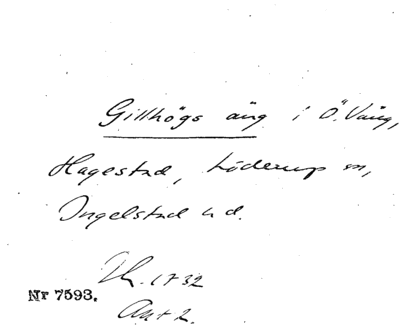 Gillhögs äng i Ö. Vång,
Hagestad, Löderup sn,
Ingelstad hd.
Sk. 1732
Nr 7593.
Akt 2.